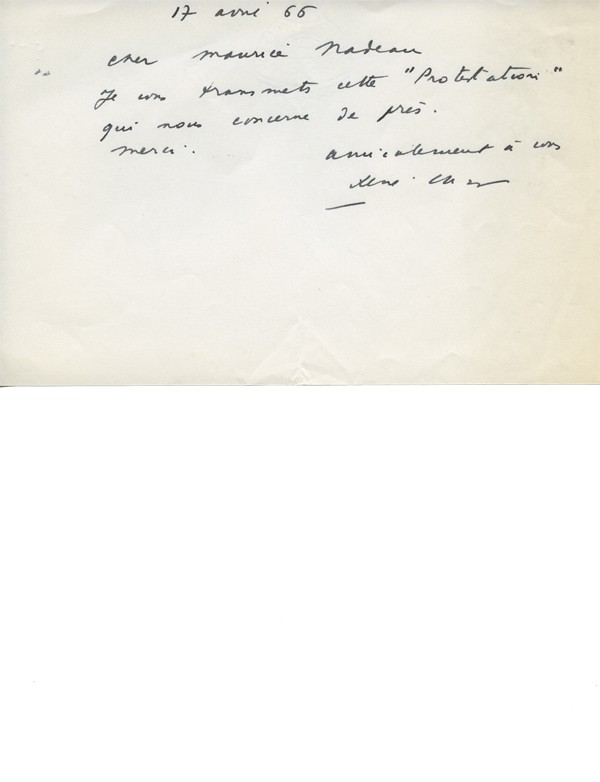 17 avril 66
cher maurice Nadeau
Je vous transmets cette "Protestation"
qui nous concerne de près.
merci.
amicalement à vous
René Char